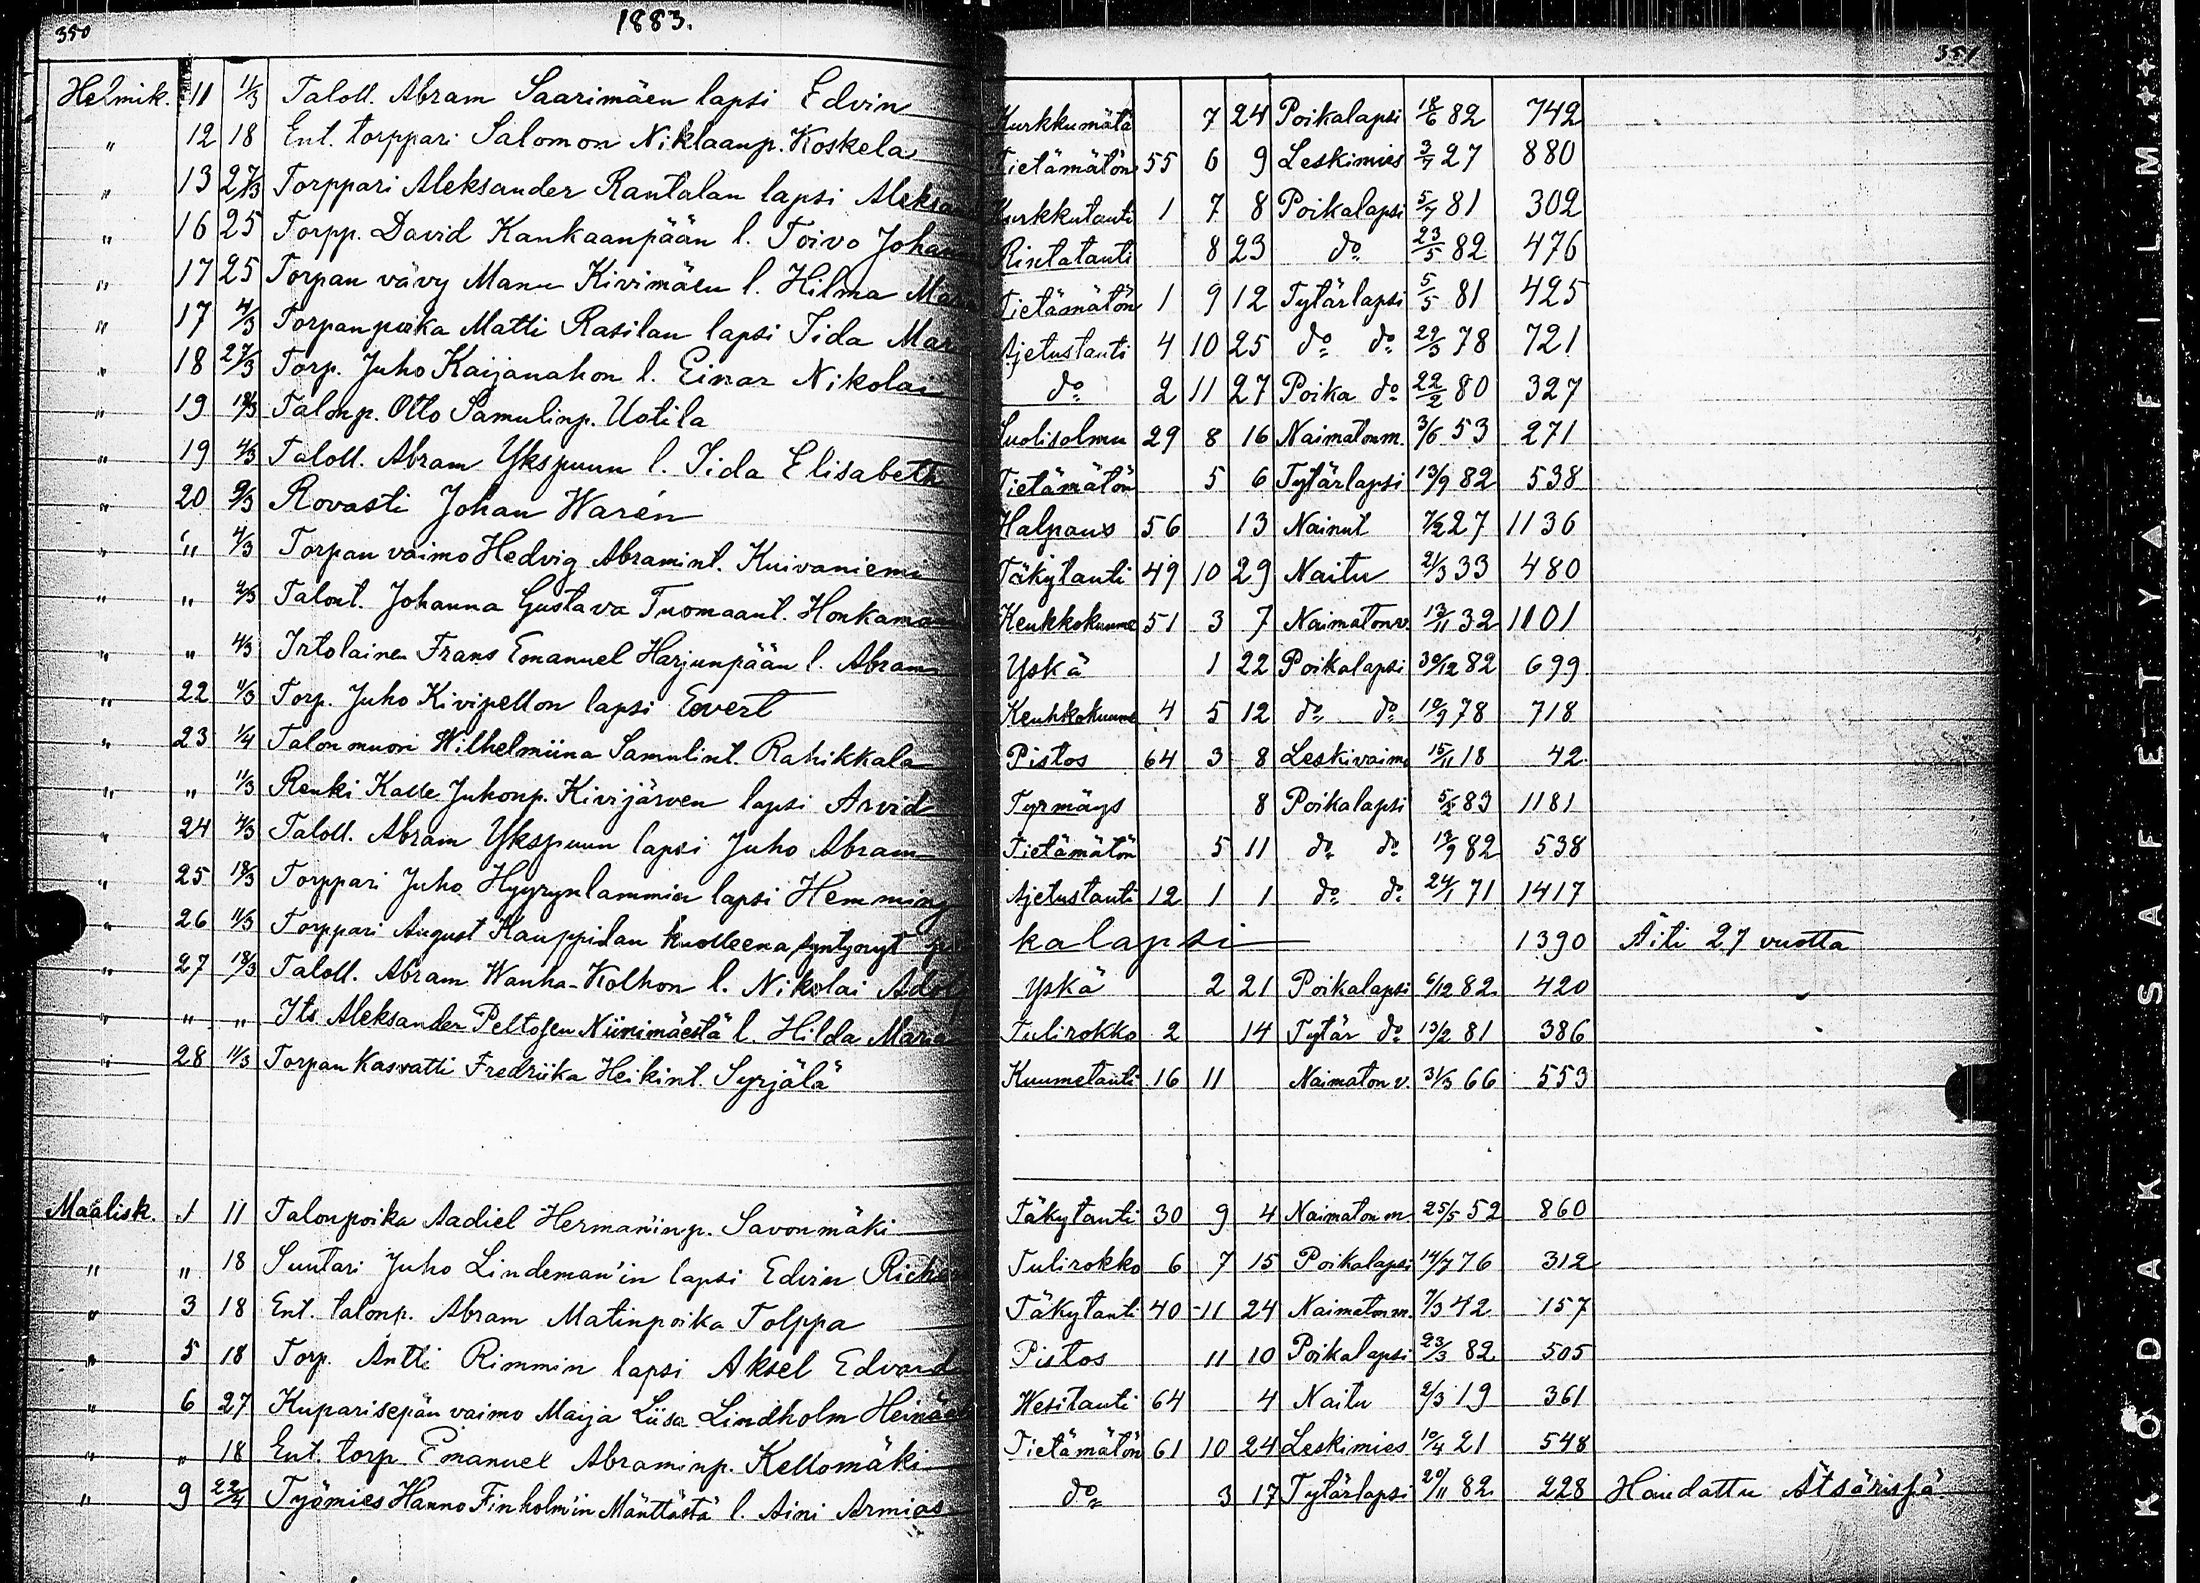 350 1883. 351
Helmik. 11 11/3 Taloll. Abram Saarimäen lapsi Edvin Kurkkumätä 7 24 Poikalapsi 18/6 82 742
" 12 18 Ent. torppari Salomon Niklaanp. Koskela Tietämätön 55 6 9 Leskimies 3/7 27 880
" 13 27/3 Torppari Aleksander Rantalan lapsi Aleksan Kurkkutauti 1 7 8 Poikalapsi 5/7 81 302
" 16 25 Torpp. David Kankaanpään l. Toivo Johan Rintatauti 8 23 do 23/5 82 476
" 17 25 Torpan vävy Manu Kivimäen l. Hilma Mar Tietämätön 1 9 12 Tytärlapsi 5/5 81 425
" 17 4/3 Torpanpoika Matti Rasilan lapsi Iida Mar Ajetustauti 4 10 25 do do 22/3 78 721
" 18 27/3 Torp. Juho Kaijanahon l. Einar Nikolai do 2 11 27 Poika do 22/2 80 327
" 19 18/3 Talonp. Otto Samulinp. Uotila Suolisolmu 29 8 16 Naimaton m. 3/6 53 271
" 19 4/3 Taloll. Abram Ykspuun l. Iida Elisabeth Tietämätön 5 6 Tytärlapsi 13/9 82 538
" 20 9/3 Rovasti Johan Warén Halpaus 56 13 Nainut 7/2 27 1136
" " 4/3 Torpan vaimo Hedvig Abramint. Kuivaniemi Täkytauti 49 10 29 Naitu 21/3 33 480
" " 4/3 Talont. Johanna Gustava Tuomaant. Honkaman Keuhkokuume 51 3 7 Naimaton v. 13/11 32 1101
" " 4/3 Irtolainen Frans Emanuel Harjunpään l. Abram Yskä 1 22 Poikalapsi 30/12 82 699
" 22 11/3 Torp. Juho Kivipellon lapsi Evert Keuhkokuume 4 5 12 do do 10/9 78 718
" 23 1/4 Talon muori Wilhelmiina Samulint. Rahikkala Pistos 64 3 8 Leskivaimo 15/11 18 42
" " 11/3 Renki Kalle Juhonp. Kivijärven lapsi Arvid Tyrmäys 8 Poikalapsi 5/2 83 1181
" 24 4/3 Taloll. Abram Ykspuun lapsi Juho Abram Tietämätön 5 11 do do 13/9 82 538
" 25 18/3 Torppari Juho Hyyrynlammin lapsi Hemming Ajetustauti 12 1 1 do do 24/1 71 1417
" 26 11/3 Torppari August Kauppilan kuolleena syntynyt poikalapsi 1390 Äiti 27 vuotta
" 27 18/3 Taloll. Abram Wanha-Kolhon l. Nikolai Adolf Yskä 2 21 Poikalapsi 6/12 82 420
" " " Its Aleksander Peltosen Niinimäestä l. Hilda Maria Tulirokko 2 14 Tytär do 13/2 81 386
" 28 11/3 Torpan kasvatti Fredriika Heikint. Syrjälä Kuumetauti 16 11 Naimaton v. 31/3 66 553
Maalisk. 1 11 Talonpoika Aadiel Herman'inp. Savonmäki Täkytauti 30 9 4 Naimaton m. 25/5 52 860
" " 18 Suutari Juho Lindeman'in lapsi Edvin Richar Tulirokko 6 7 15 Poikalapsi 14/7 76 312
" 3 18 Ent. talonp. Abram Matinpoika Tolppa Täkytauti 40 11 24 Naimaton m. 7/3 42 157
" 5 18 Torp. Antti Rimmin lapsi Aksel Edvard Pistos 11 10 Poikalapsi 23/3 82 505
" 6 27 Kuparisepän vaimo Maija Liisa Lindholm Heinä Wesitauti 64 4 Naitu 2/3 19 361
" " 18 Ent. torp. Emanuel Abraminp. Kellomäki Tietämätön 61 10 24 Leskimies 10/4 21 548
" 9 22/4 Työmies Hanno Finholm'in Mänttästä l. Aini Armias do 3 17 Tytärlapsi 20/11 82 228 Haudattu Ätsärissä
KODAK SAFETY FILM